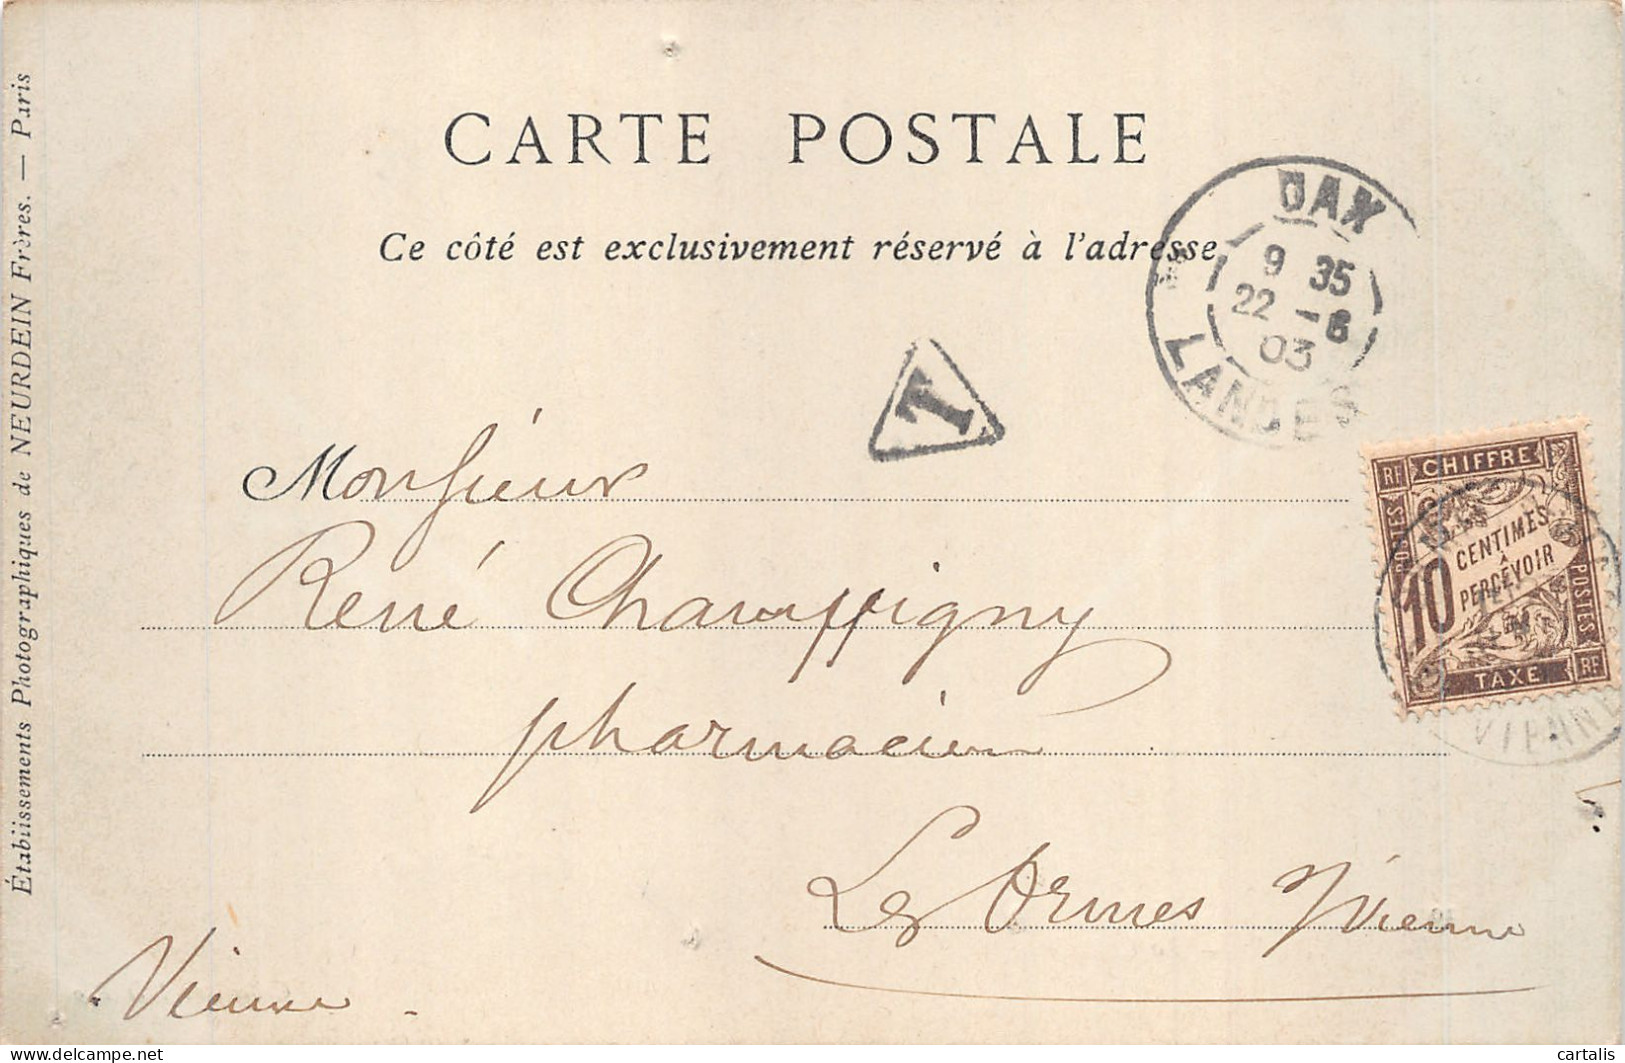 CARTE POSTALE
Ce côté est exclusivement réservé à l'adresse
DAX
9 35
22 -6
03
LANDES
T
RF CHIFFRE
POSTES
10 CENTIMES
À
PERCEVOIR
POSTES
TAXE RF
VIENNE
Monsieur
René Champigny
pharmacien
Les Ormes Vienne
Vienne
Établissements Photographiques de NEURDEIN Frères. — Paris
delcampe.net
cartalis